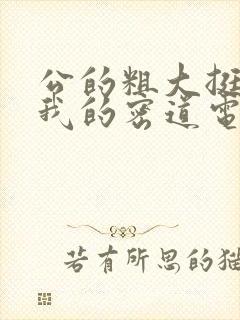 公的粗大挺
我的密道电
若有所思的猫